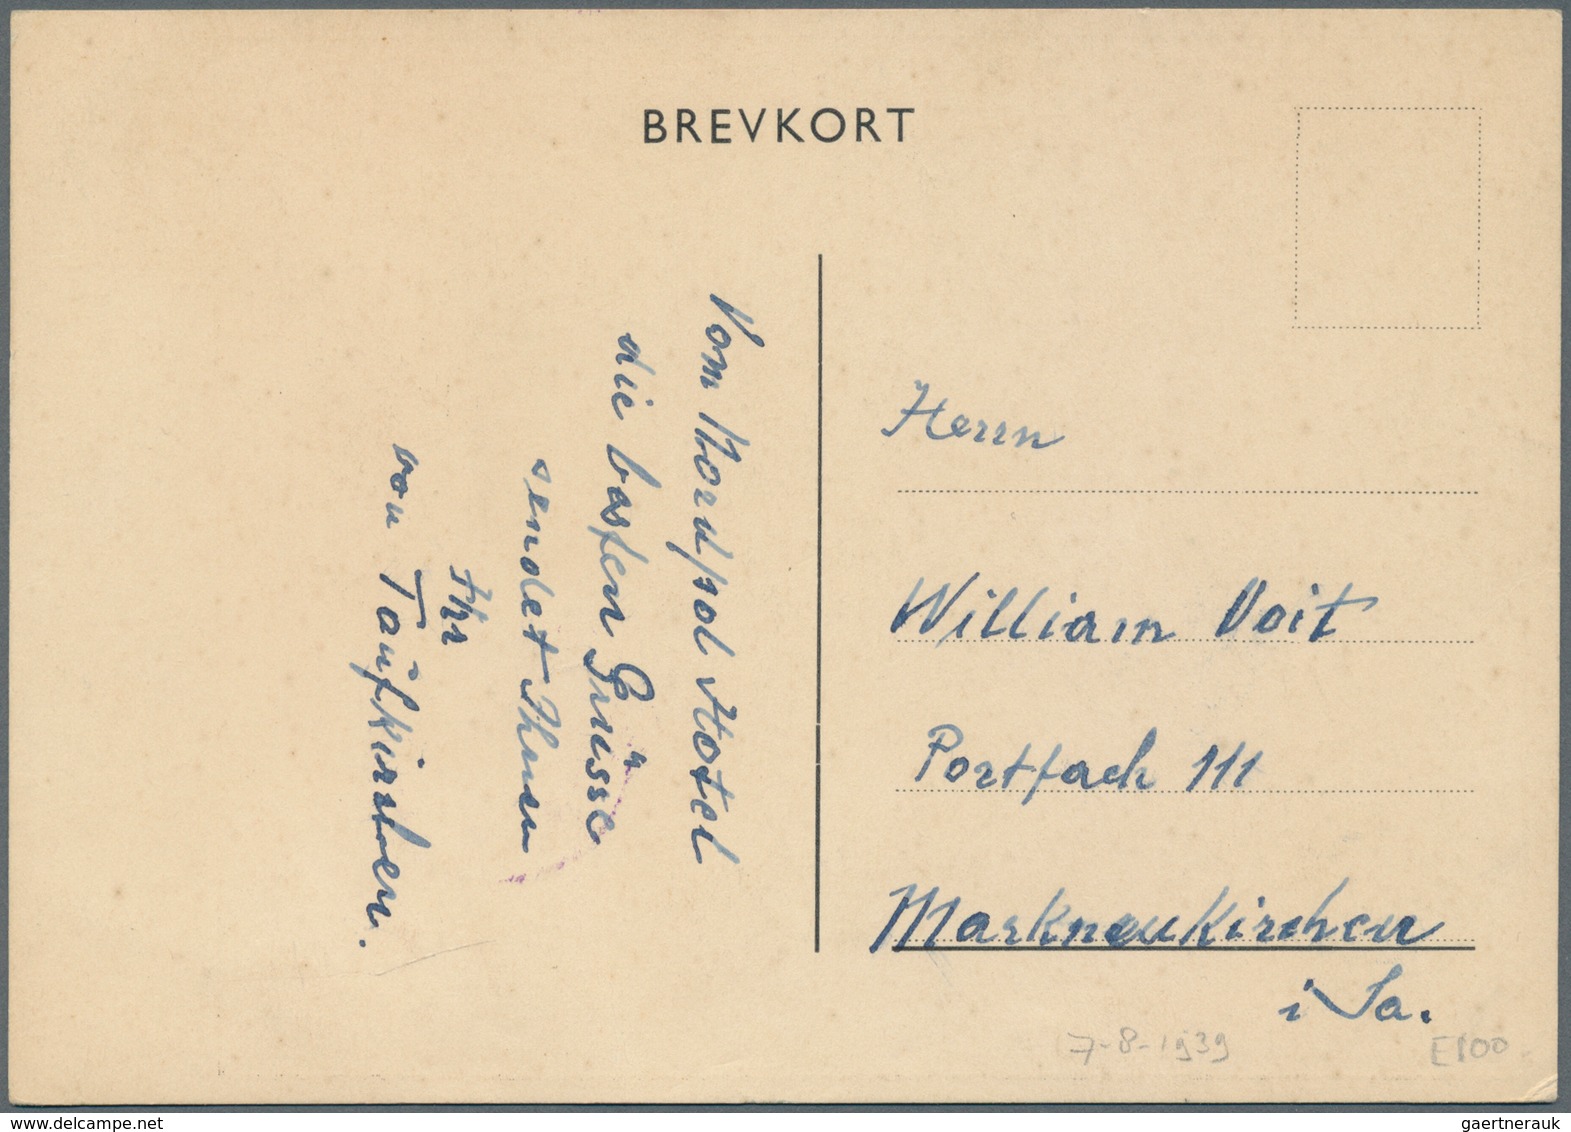 BREVKORT
Vom Nordpol Hotel
die besten Grüsse
sendet Ihnen
Ihr
von Taufkirchen.
Herrn
William Voit
Postfach 111
Markneukirchen
i Sa.
7-8-1939
E100
gaertnerauk @ delcampe.net